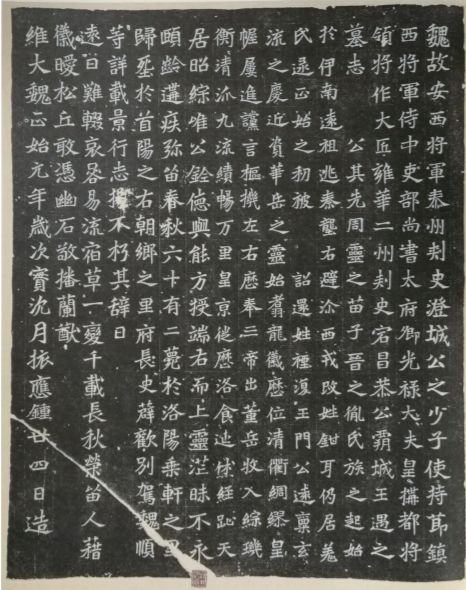 魏故安西將軍泰州刾史澄城公之少子使持莭鎮
西將軍侍中吏部尚書太府卿光祿大夫皇搆都將
領將作大匠雍華二州刾史宕昌恭公霸城王遇之
墓志　公其先周靈之苗子晉之胤氏族之起始
於伊南遠祖逃秦壟右避沴西戎改姓鉗耳仍居羌
氏逯正始之初被　詔還姓種復王門公遠稟玄
流之慶近資華岳之靈始翥龍讖歷位清衢綢繆皇
幄屢進讜言樞機左右歷奉三帝出董岳收入綜璣
衡清泒九流績暢万里皇京徙歷洛食經趾天
居昭綜唯公銓德與能方授端右而上靈茫昧不永
頤齡遘疾弥笛春秋六十有二薨於洛陽乘軒之里
歸於首陽之右朝鄉之里府長史薛歡別駕魏順
等詳載景行志不朽其辞曰
遠日難輟哀容易流宿草一變千載長秋榮笛人藉
儀曖松丘敢憑幽石敬播蘭猷
維大魏正始元年歲次實沈月振應鍾廿四日造